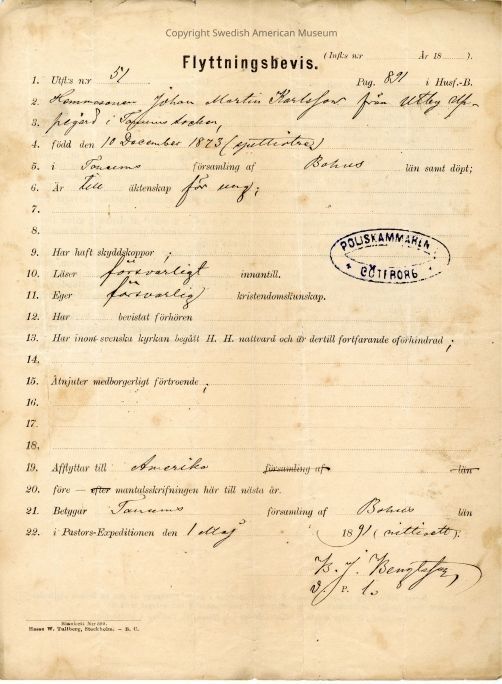 Copyright Swedish American Museum
(Infl:s n:r År 18 ).
Flyttningsbevis.
1. Utfl:s n:r 51 Pag. 891 i Husf.-B.
2. Hemmasonen Johan Martin Karlsson från Utby Up-
3. pegård i Tanums socken,
4. född den 10 December 1873 (sjuttiotre)
5. i Tanums församling af Bohus län samt döpt;
6. Är till äktenskap för ung;
7.
8.
9. Har haft skyddskoppor;
10. Läser försvarligt innantill.
11. Eger försvarlig kristendomskunskap.
POLISKAMMAREN
GÖTEBORG
12. Har bevistat förhören
13. Har inom svenska kyrkan begått H. H. nattvard och är dertill fortfarande oförhindrad;
14.
15. Åtnjuter medborgerligt förtroende;
16.
17.
18.
19. Afflyttar till Amerika församling af län
20. före — efter mantalsskrifningen här till nästa år.
21. Betygar Tanums församling af Bohus län
22. i Pastors-Expeditionen den 1 Maj 1891 (nittioett).
B. J. Bengtsson
v. P. l.
Blankett N:r
Hasse W. Tullberg, Stockholm. — B. C.